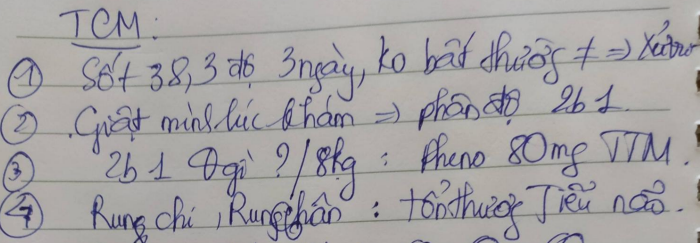 TCM:
① Sốt 38,3 độ 3 ngày, ko bất thường ≠ =>
② Giật mình lúc khám => phân độ 2b 1.
③ 2b 1 θ gì ? / 8kg : Pheno 80mg TTM.
④ Rung chi, Rung thân : tổn thương Tiểu não.